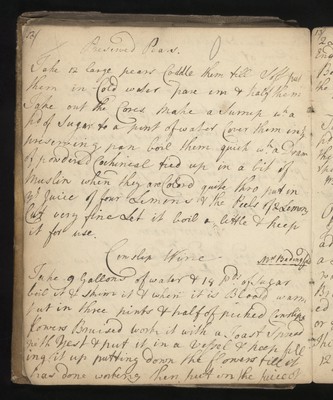 Preserved Pears.
Take 12 large pears Coddle them till Soft put
them in Cold water pare em & half them
Take out the Cores make a Surrup wth a
pd of Sugar to a pint of water Cover them in a
preserving pan boil them quick wth a Dram
of powdered Cochineal tied up in a bit of
Muslin when they are Cold quite thro put in
ye Juice of four Lemons & the Peels of 2 Lemons
Cut very fine Let it boil a little & keep
it for use.
Cowslip Wine
Take 9 Gallons of water & 19 pds of Sugar
boil it & skim it & when it is Blood warm
put in three pints & half of picked Cowslip
flowers Bruised work it with a Toast Spread
with Yest & put it in a Vessel & keep fill
ing it up putting down the flowers till it
has done working then put in the Juice of